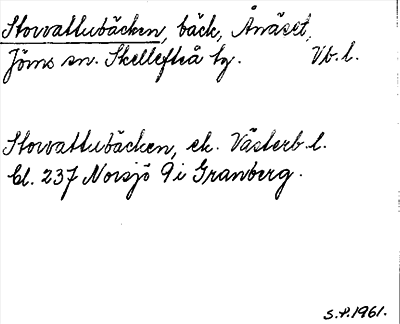 Storvattubäcken, bäck, Ånäset,
Jörns sn. Skellefteå tg. Vb. l.
Storvattubäcken, ek. Västerb. l.
Bl. 237 Norsjö 9i Granberg.
S.P. 1961.